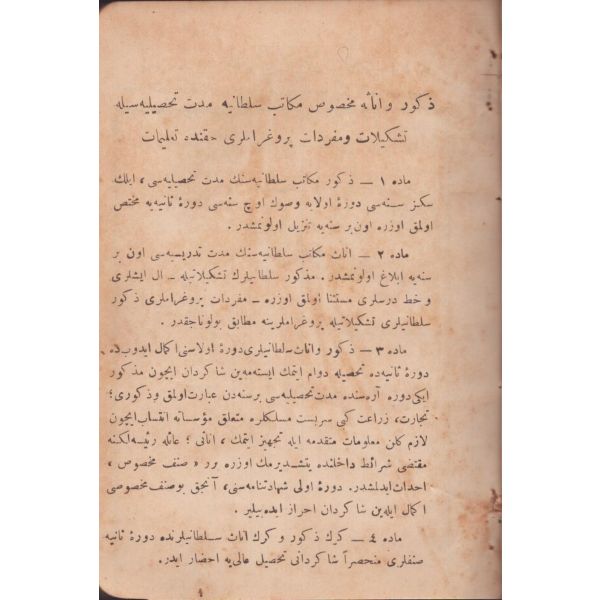 ذكور و اناثه مخصوص مكاتب سلطانيه مدت تحصيليه‌سيله
تشكيلات و مفردات پروغراملرى حقنده تعليمات
ماده ١ — ذكور مكاتب سلطانيه‌سنك مدت تحصيليه‌سى ، ايلك
سكز سنه‌سى دورهٔ اولايه وصوك اوچ سنه‌سى دورهٔ ثانيه‌يه مختص
اولمق اوزره اون بر سنه‌يه تنزيل اولونمشدر .
ماده ٢ — اناث مكاتب سلطانيه‌سنك مدت تدريسيه‌سى اون بر
سنه‌يه ابلاغ اولونمشدر . مذكور سلطانيلرك تشكيلاتيله — ال ايشلرى
و خط درسلرى مستثنا اولمق اوزره — مفردات پروغراملرى ذكور
سلطانيلرى تشكيلاتيله پروغراملرينه مطابق بولوناجقدر .
ماده ٣ — ذكور و اناث سلطانيلرى دورهٔ اولاسنى اكمال ايدوب‌ده
دورهٔ ثانيه‌ده تحصيله دوام ايتمك ايسته‌مه‌ين شاكردان ايچون مذكور
ايكى دوره آره‌سنده مدت تحصيليه‌سى بر سنه‌دن عبارت اولمق و ذكورى ؛
تجارت ، زراعت كبى سربست مسلكلره متعلق مؤسساته انتساب ايچون
لازم كلن معلومات متقدمه ايله تجهيز ايتمك ، اناثى ؛ عائله رئيسه‌لكنه
مقتضى شرائط داخلنده يتشديرمك اوزره بر « صنف مخصوص ،
احداث ايدلمشدر . دورهٔ اولى شهادتنامه‌سنى ، آنجق بو صنف مخصوصى
اكمال ايله‌ين شاكردان احراز ايده‌بيلير .
ماده ٤ — كرك ذكور و كرك اناث سلطانيلرنده دورهٔ ثانيه
صنفلرى منحصراً شاكردانى تحصيل عالى‌يه احضار ايدر .